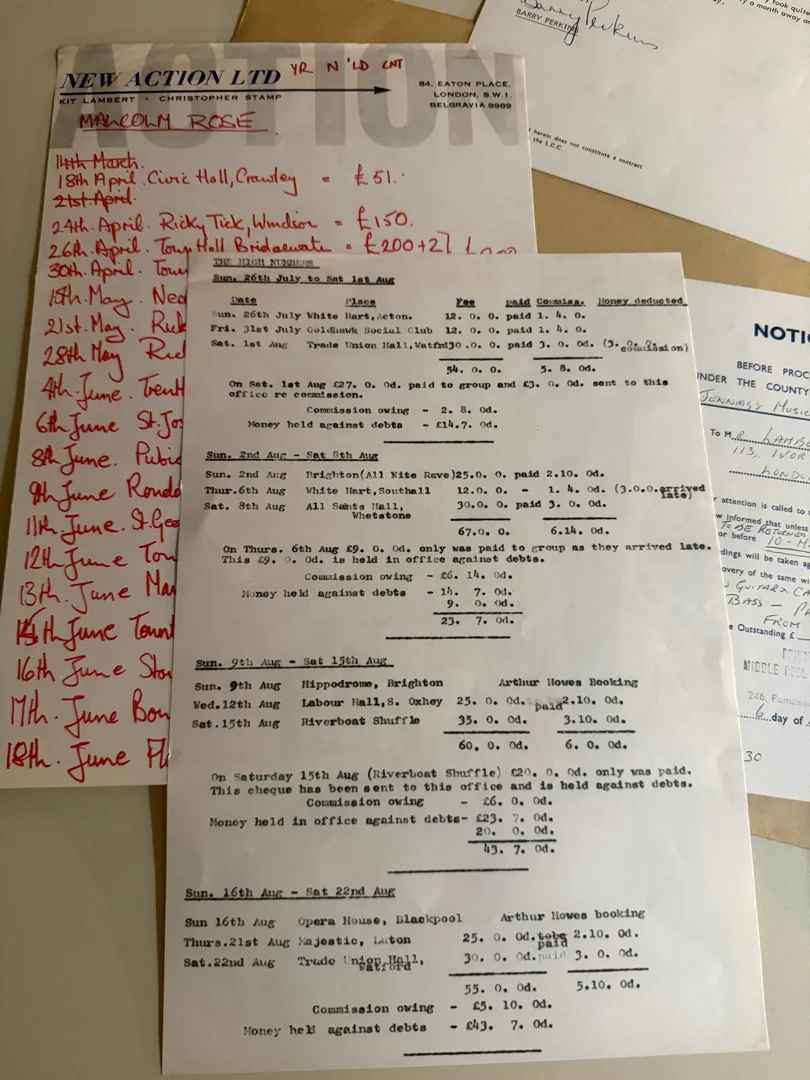 Barry Perkins
BARRY PERKINS
took quite
a month away
herein does not constitute a contract
the L.C.C.
ACTION
NEW ACTION LTD
YR N 'LD CNT
KIT LAMBERT • CHRISTOPHER STAMP
84, EATON PLACE,
LONDON, S.W.1.
BELGRAVIA 8989
MALCOLM ROSE
14th March.
18th April. Civic Hall, Crawley = £51.
21st April.
24th April. Ricky Tick, Windsor = £150.
26th April. Town Hall Bridgewate = £200+27
30th April. Town
15th May.
21st May. Rick
28th May
4th June. Trent
6th June St. Jos
8th June.
9th June Ronde
11th June. St. Geo
12th June Tow
13th. June Ma
15th June Taunt
16th June
17th. June Bou
18th. June
THE HIGH NUMBERS
Sun. 26th July to Sat 1st Aug
Date Place Fee paid Commiss. Money deducted
Sun. 26th July White Hart, Acton. 12. 0. 0. paid 1. 4. 0.
Fri. 31st July Goldhawk Social Club 12. 0. 0. paid 1. 4. 0.
Sat. 1st Aug Trade Union Hall, Watfrd 30 .0. 0. paid 3. 0. 0d. (3. 0. 0. commission)
54. 0. 0. 5. 8. 0d.
On Sat. 1st Aug £27. 0. 0d. paid to group and £3. 0. 0d. sent to this
office re commission.
Commission owing - 2. 8. 0d.
Money held against debts - £14.7. 0d.
Sun. 2nd Aug - Sat 8th Aug
Sun. 2nd Aug Brighton(All Nite Rave)25.0. 0. paid 2.10. 0d.
Thur.6th Aug White Hart, Southall 12.0. 0. - 1. 4. 0d. (3.0.0.arrived late)
Sat. 8th Aug All Saints Hall, Whetstone 30.0. 0. paid 3. 0. 0d.
67.0. 0. 6.14. 0d.
On Thurs. 6th Aug £9. 0. 0d. only was paid to group as they arrived late.
This £9. 0. 0d. is held in office against debts.
Commission owing - £6. 14. 0d.
Money held against debts - 14. 7. 0d.
9. 0. 0d.
23. 7. 0d.
Sun. 9th Aug - Sat 15th Aug
Sun. 9th Aug Hippodrome, Brighton Arthur Howes Booking
Wed.12th Aug Labour Hall,S. Oxhey 25. 0. 0d. paid 2.10. 0d.
Sat.15th Aug Riverboat Shuffle 35. 0. 0d. 3.10. 0d.
60. 0. 0d. 6. 0. 0d.
On Saturday 15th Aug (Riverboat Shuffle) £20. 0. 0d. only was paid.
This cheque has been sent to this office and is held against debts.
Commission owing - £6. 0. 0d.
Money held in office against debts- £23. 7. 0d.
20. 0. 0d.
43. 7. 0d.
Sun. 16th Aug - Sat 22nd Aug
Sun 16th Aug Opera House, Blackpool Arthur Howes booking
Thurs.21st Aug Majestic, Luton 25. 0. 0d. tobe paid 2.10. 0d.
Sat.22nd Aug Trade Union Hall, Watford 30. 0. 0d. paid 3. 0. 0d.
55. 0. 0d. 5.10. 0d.
Commission owing - £5. 10. 0d.
Money held against debts - £43. 7. 0d.
NOTIC
BEFORE PROC
UNDER THE COUNTY
JENNINGS MUSIC
To MR LAMBE
113, IVOR
LONDON
attention is called to
informed that unless
TO BE RETURNED
or before 10-M
dings will be taken ag
overy of the same wi
GUITAR & CA
BASS - P
FROM
e Outstanding £
MIDDLE POOL
6 day of
30